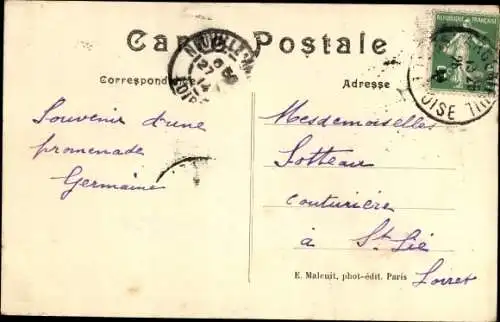 Carte Postale
Correspondance
Adresse
REPUBLIQUE FRANÇAISE
5
NEUVILLE
27
6
14
LOIRET
OISE
Souvenir d'une
promenade
Germaine
Mesdemoiselles
Sotteau
couturière
à St Lié
Loiret
E. Malcuit, phot-édit. Paris